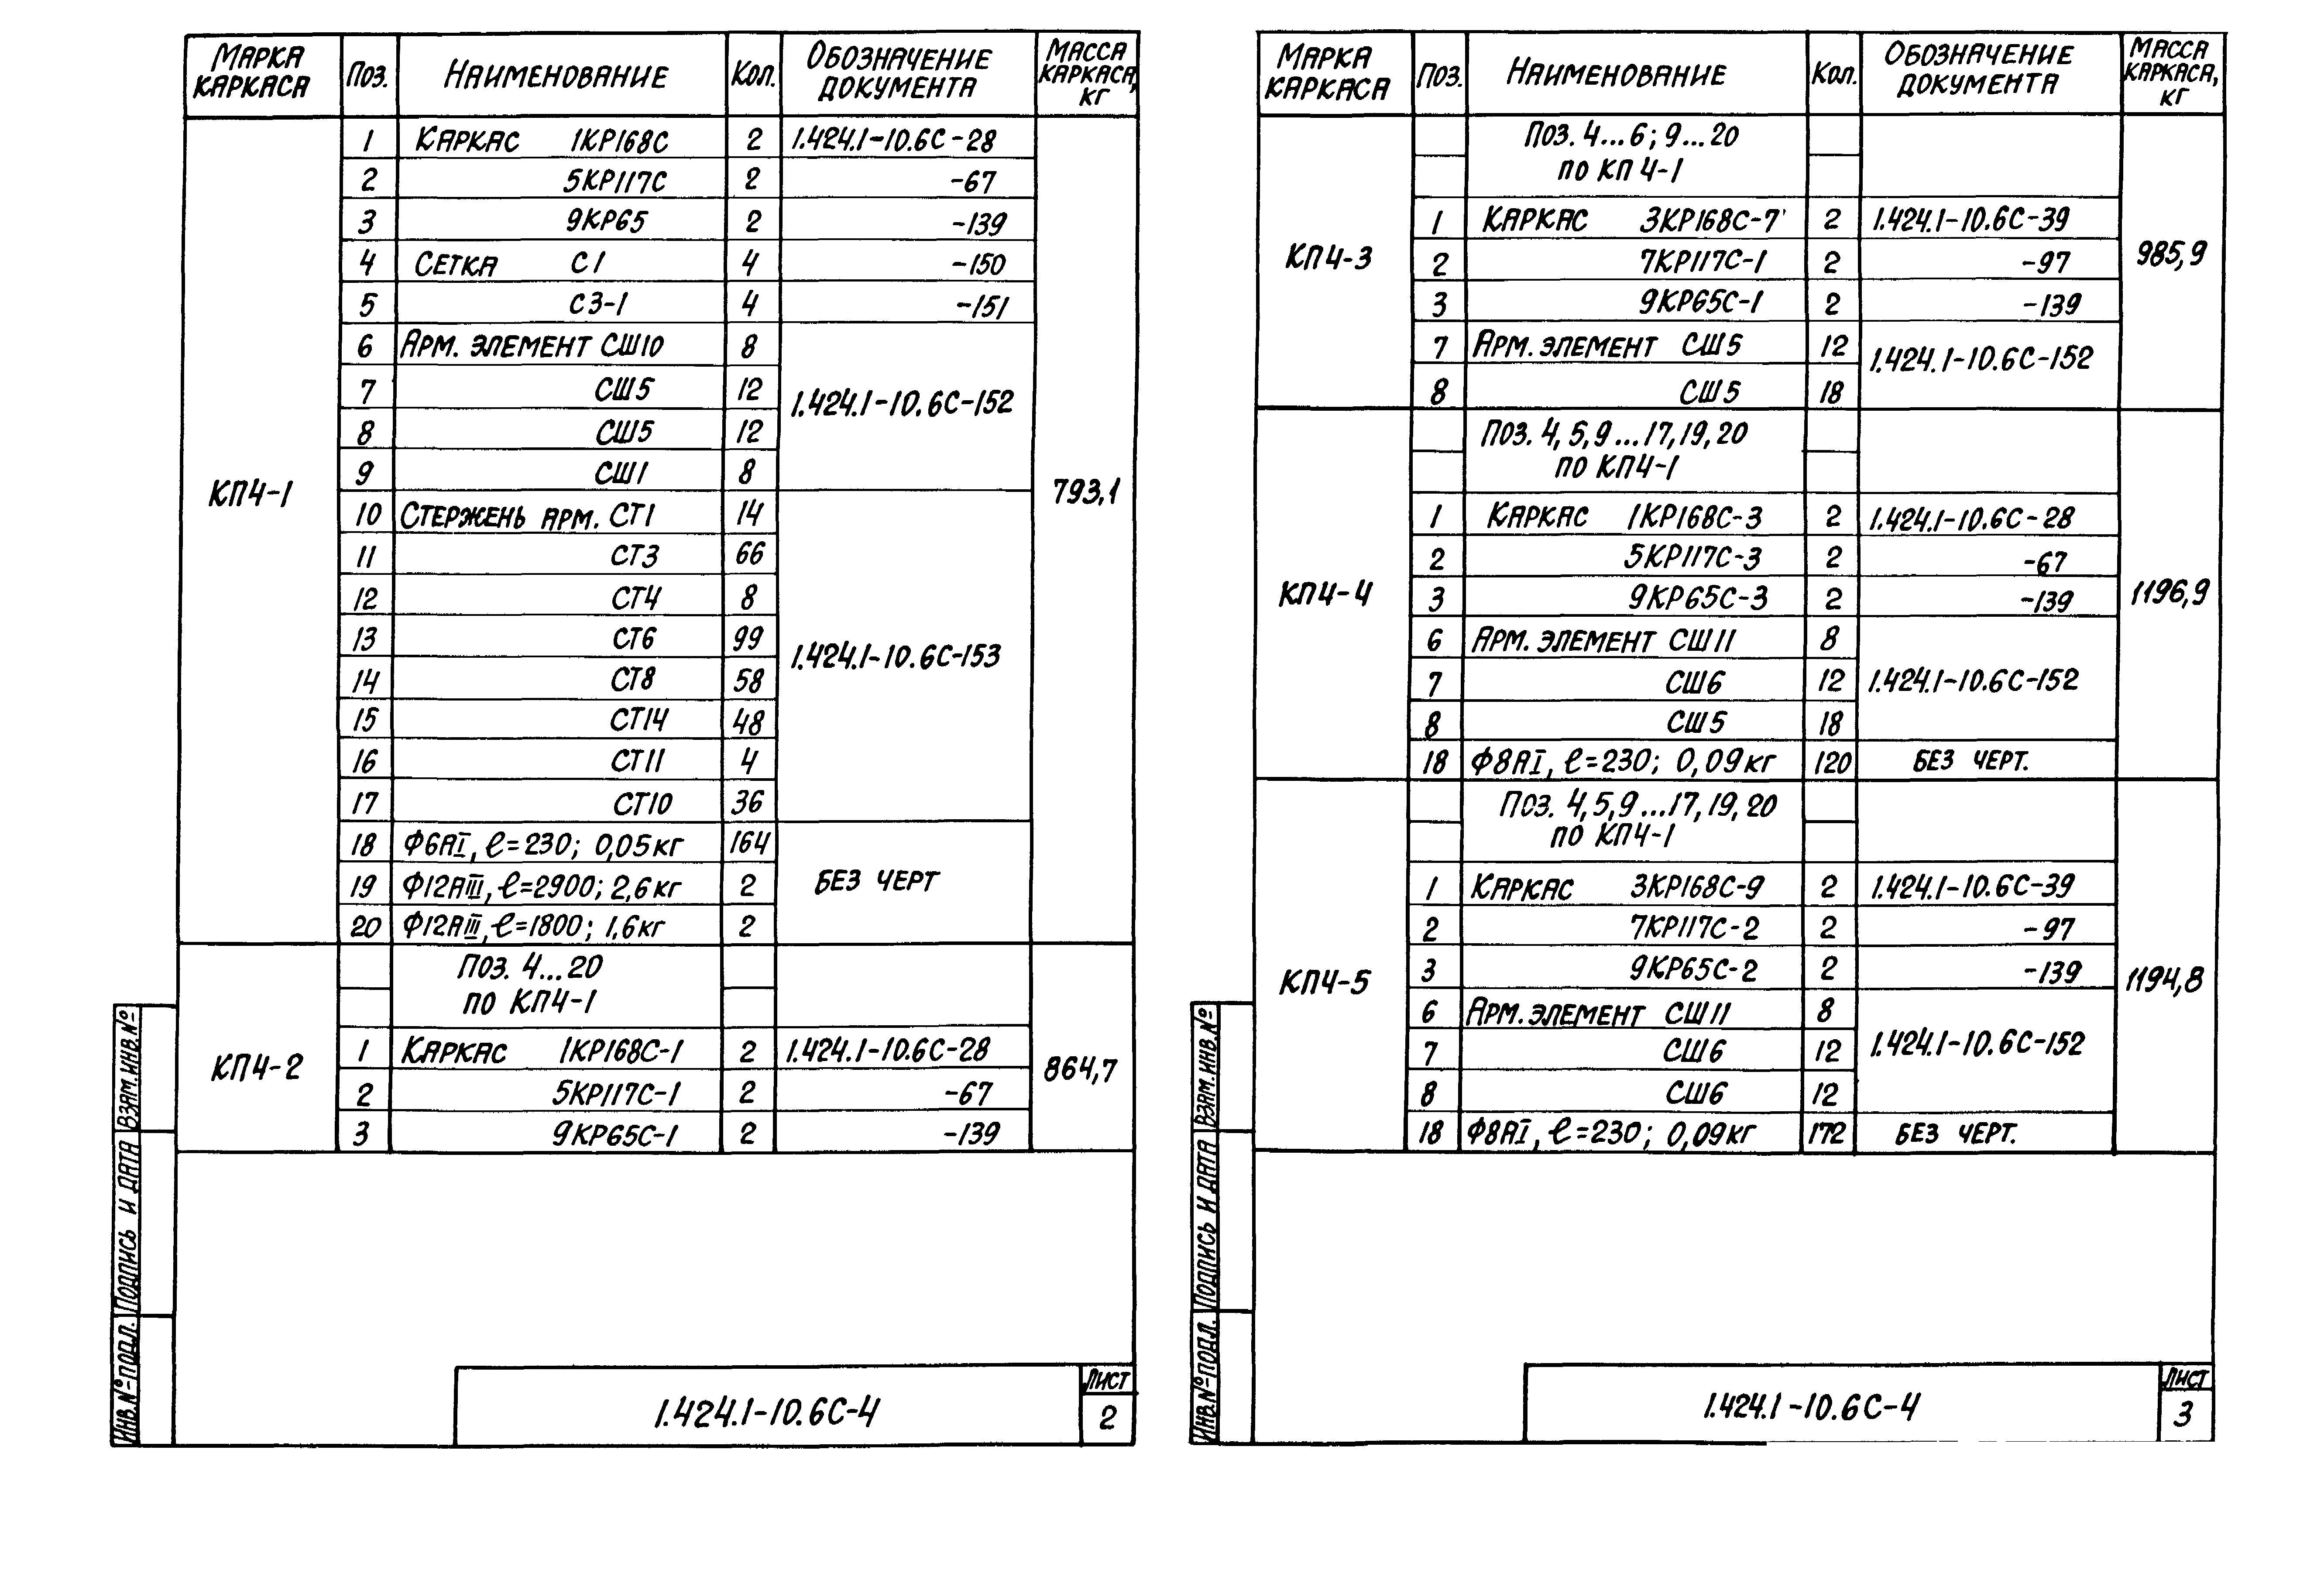 Марка каркаса | Поз. | Наименование | Кол. | Обозначение документа | Масса каркаса, кг
КП4-1 | 793,1
1 | Каркас 1КР168С | 2 | 1.424.1-10.6С-28
2 | 5КР117С | 2 | -67
3 | 9КР65 | 2 | -139
4 | Сетка С1 | 4 | -150
5 | С3-1 | 4 | -151
6 | Арм. элемент СШ10 | 8 | 1.424.1-10.6С-152
7 | СШ5 | 12
8 | СШ5 | 12
9 | СШ1 | 8
10 | Стержень арм. СТ1 | 14 | 1.424.1-10.6С-153
11 | СТ3 | 66
12 | СТ4 | 8
13 | СТ6 | 99
14 | СТ8 | 58
15 | СТ14 | 48
16 | СТ11 | 4
17 | СТ10 | 36
18 | Ф6АI, ℓ=230; 0,05кг | 164 | без черт
19 | Ф12АIII, ℓ=2900; 2,6кг | 2
20 | Ф12АIII, ℓ=1800; 1,6кг | 2
КП4-2 | 864,7
Поз. 4...20
по КП4-1
1 | Каркас 1КР168С-1 | 2 | 1.424.1-10.6С-28
2 | 5КР117С-1 | 2 | -67
3 | 9КР65С-1 | 2 | -139
Инв.№подл. | Подпись и дата | Взам.инв.№
1.424.1-10.6С-4
Лист
2
Марка каркаса | Поз. | Наименование | Кол. | Обозначение документа | Масса каркаса, кг
КП4-3 | 985,9
Поз. 4...6; 9...20
по КП4-1
1 | Каркас 3КР168С-7 | 2 | 1.424.1-10.6С-39
2 | 7КР117С-1 | 2 | -97
3 | 9КР65С-1 | 2 | -139
7 | Арм. элемент СШ5 | 12 | 1.424.1-10.6С-152
8 | СШ5 | 18
КП4-4 | 1196,9
Поз. 4, 5, 9...17, 19, 20
по КП4-1
1 | Каркас 1КР168С-3 | 2 | 1.424.1-10.6С-28
2 | 5КР117С-3 | 2 | -67
3 | 9КР65С-3 | 2 | -139
6 | Арм. элемент СШ11 | 8 | 1.424.1-10.6С-152
7 | СШ6 | 12
8 | СШ5 | 18
18 | Ф8АI, ℓ=230; 0,09кг | 120 | без черт.
КП4-5 | 1194,8
Поз. 4, 5, 9...17, 19, 20
по КП4-1
1 | Каркас 3КР168С-9 | 2 | 1.424.1-10.6С-39
2 | 7КР117С-2 | 2 | -97
3 | 9КР65С-2 | 2 | -139
6 | Арм. элемент СШ11 | 8 | 1.424.1-10.6С-152
7 | СШ6 | 12
8 | СШ6 | 12
18 | Ф8АI, ℓ=230; 0,09кг | 172 | без черт.
Инв.№подл. | Подпись и дата | Взам.инв.№
1.424.1-10.6С-4
Лист
3